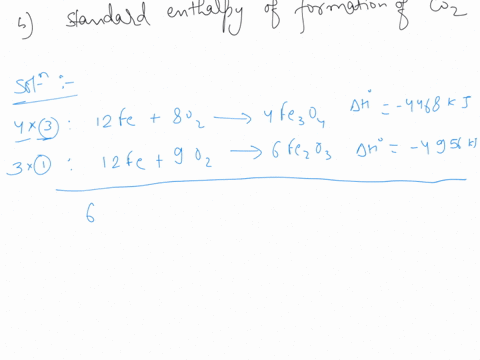 b) Standard enthalpy of formation of CO₂
Solⁿ :-
4 × ③ : 12 Fe + 8O₂ → 4 Fe₃O₄ ΔH° = -4468 kJ
3 × ① : 12 Fe + 9 O₂ → 6 Fe₂O₃ ΔH° = -4956 kJ
6